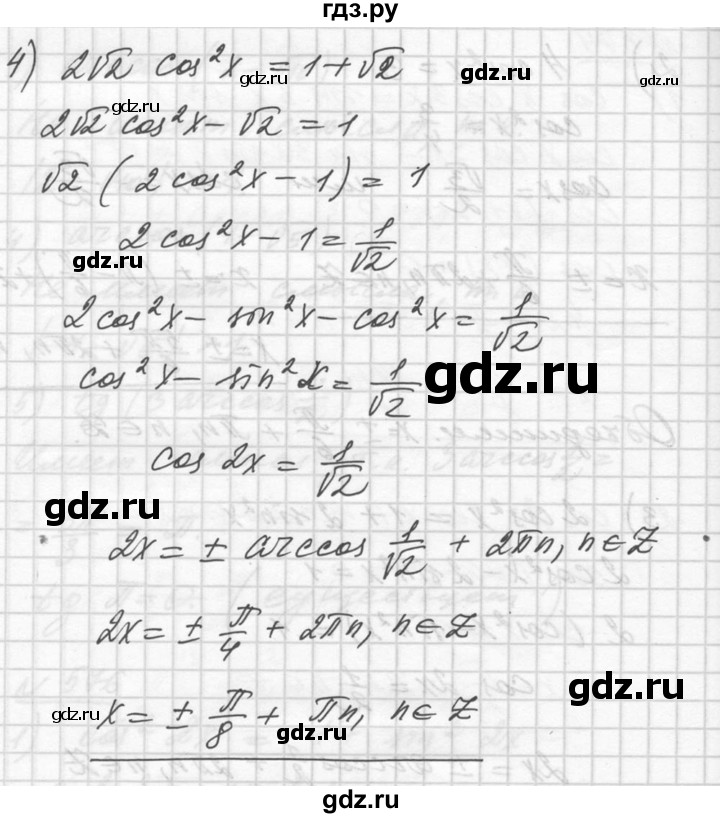 гдз.ру
4) 2√2 cos²x = 1+√2
gdz.ru gdz.ru gdz.ru
gdz.ru
2√2 cos²x − √2 = 1
√2 (2 cos²x − 1) = 1
2 cos²x − 1 = 1/√2
gdz.ru
2 cos²x − sin²x − cos²x = 1/√2
cos²x − sin²x = 1/√2
gdz.ru
cos 2x = 1/√2
gdz.ru
2x = ± arccos 1/√2 + 2πn, n ∈ Z
2x = ± π/4 + 2πn, n ∈ Z
gdz.ru
x = ± π/8 + πn, n ∈ Z
gdz.ru gdz.ru
gdz.ru